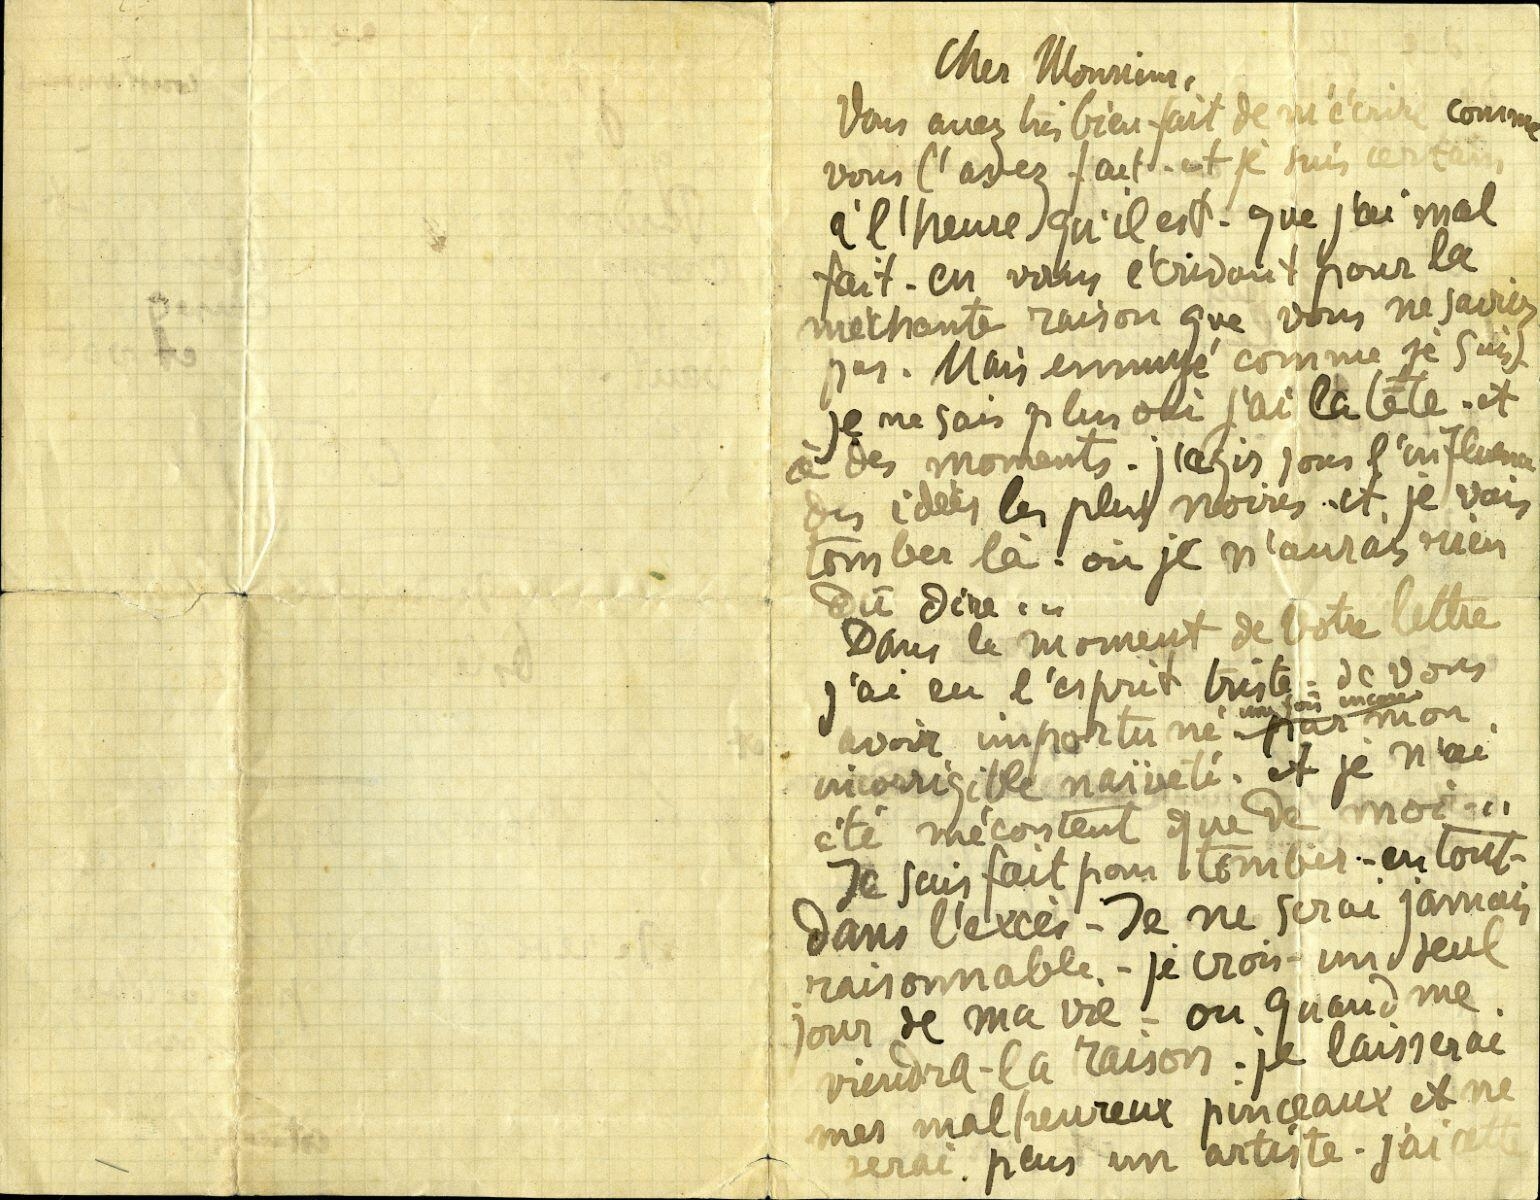 Cher Monsieur,
Vous avez très bien fait de m'écrire comme
vous l'avez fait - et je suis certain
à l'heure qu'il est - que j'ai mal
fait - en vous écrivant pour la
méchante raison que vous ne saviez
pas. Mais ennuyé comme je suis
je ne sais plus où j'ai la tête - et
à des moments - j'agis sous l'influence
des idées les plus noires - et je vais
tomber là - où je n'aurais rien
dû dire...
Dans le moment de votre lettre
j'ai eu l'esprit triste - de vous
une fois encore
avoir importuné - par mon
incorrigible naïveté - et je n'ai
été mécontent que de moi...
Je suis fait pour tomber - en tout -
dans l'excès - Je ne serai jamais
raisonnable - je crois - un seul
jour de ma vie - ou quand me
viendra - la raison - je laisserai
mes malheureux pinceaux et ne
serai plus un artiste - j'ai cette